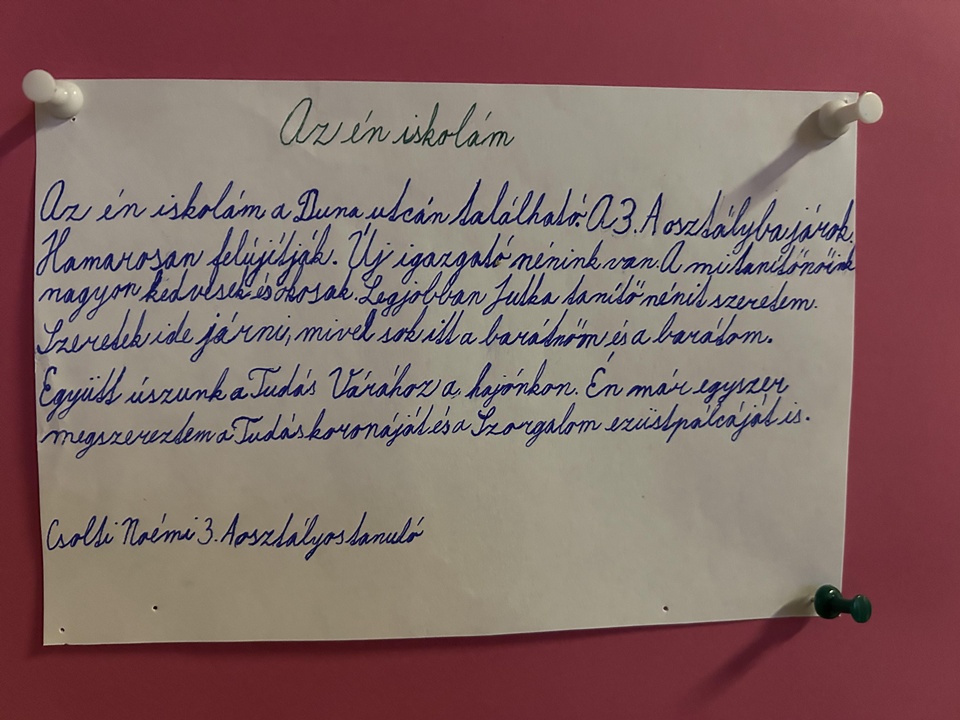 Az én iskolám
Az én iskolám a Duna utcán található. A 3. A osztályba járok.
Hamarosan felújítják. Új igazgató nénink van. A mi tanítónőink
nagyon kedvesek és okosak. Legjobban Jutka tanító nénit szeretem.
Szeretek ide járni, mivel sok itt a barátnőm és a barátom.
Együtt úszunk a Tudás Várához a hajónkon. Én már egyszer
megszereztem a Tudás koronáját és a Szorgalom ezüstpálcáját is.
Csolti Noémi 3. A osztályos tanuló